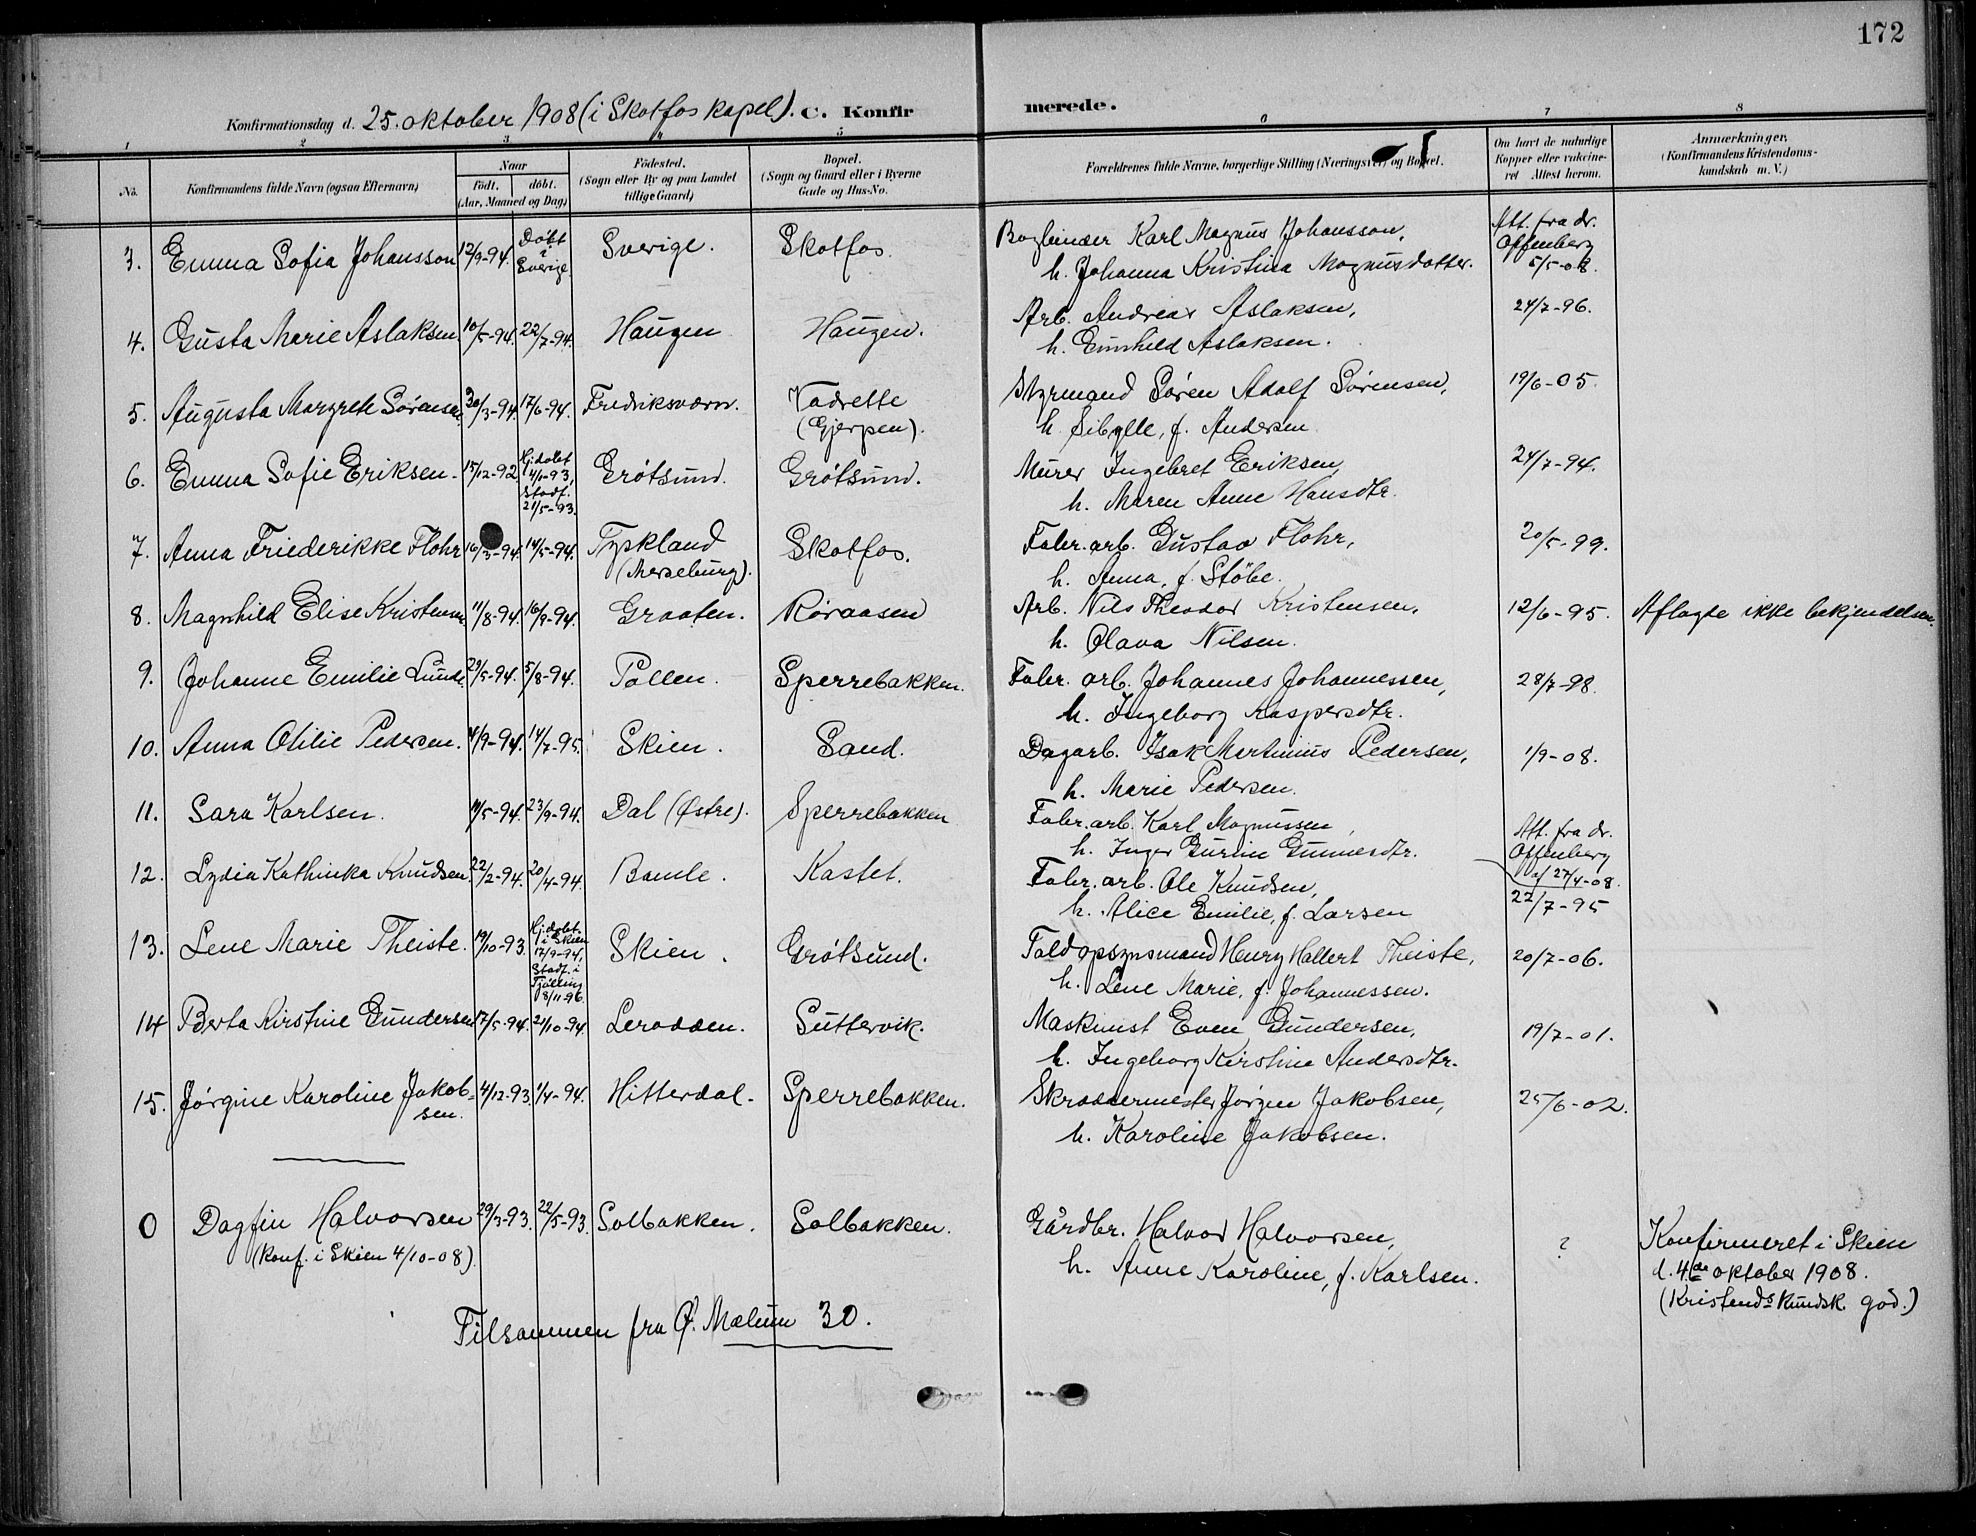 172
Konfirmationsdag d. 25. oktober 1908 (i Skotfos kapel). C. Konfirmerede.
1 2 3 4 5 6 7 8
No. Konfirmandens fulde Navn (ogsaa Efternavn) Naar født. døbt. (Aar, Maaned og Dag) Fødested. (Sogn eller By og paa Landet tillige Gaard) Bopæl. (Sogn og Gaard eller i Byerne Gade og Hus-No. Forældrenes fulde Navne, borgerlige Stilling (Næringsvei) og Bopæl. Om havt de naturlige Kopper eller vaccineret Attest herom. Anmærkninger. (Konfirmandens Kristendomskundskab m. V.)
3. Emma Sofia Johansson 12/9-94. Døbt i Sverige Sverige. Skotfos. Bogbinder Karl Magnus Johansson, Att. fra dr. Offenberg 5/5-08.
h. Johanna Kristina Magnusdotter.
4. Gusta Marie Aslaksen 10/5-94. 22/7-94. Haugen Haugen. Arb. Andreas Aslaksen, 24/7-96.
h. Gunhild Aslaksen.
5. Augusta Margreth Sørensen 30/3-94. 17/6-94. Fredriksværn. Vadrette (Gjerpen). Styrmand Søren Adolf Sørensen, 19/6-05.
h. Sibylle, f. Andersen
6. Emma Sofie Eriksen. 15/12-92 Hj.døbt 4/1-93, Stadf. 21/5-93. Grøtsund. Grøtsund. Murer Ingebret Eriksen, 24/7-94.
h. Maren Anne Hansdtr.
7. Anna Friederikke Flohr 16/3-94. 14/5-94. Tyskland (Merseburg). Skotfos. Fabr. arb. Gustav Flohr, 20/5-99.
h. Anna, f. Støbe.
8. Magnhild Elise Kristensen 11/8-94. 16/9-94. Graaten. Røraasen Arb. Nils Theodor Kristensen, 12/6-95. Aflagde ikke bekjendelsen.
h. Olava Nilsen.
9. Johanne Emilie Lunde 29/5-94. 5/8-94. Pollen. Sperrebakken. Fabr. arb. Johannes Johannessen, 28/7-98.
h. Ingeborg Kaspersdtr.
10. Anna Otilie Pedersen. 4/9-94. 14/7-95. Skien. Sand. Dagarb. Isak Martinius Pedersen, 1/9-08.
h. Marie Pedersen.
11. Sara Karlsen. 11/5-94. 23/9-94. Dal (Østre). Sperrebakken Fabr. arb. Karl Magnussen, Att. fra dr. Offenberg af 27/4-08.
h. Inger Gurine Gunnesdtr.
12. Lydia Kathinka Knudsen. 22/2-94. 20/4-94. Bamle. Kastet. Fabr. arb. Ole Knudsen, 22/7-95
h. Alice Emilie, f. Larsen
13. Lene Marie Theiste. 19/10-93. Hj.døbt. i Skien 17/9-94, Stadf. i Tjølling 8/11-96. Skien. Grøtsund. Toldopsynsmand Henry Hallert Theiste, 20/7-06.
h. Lene Marie, f. Johannessen.
14 Berta Kirstine Gundersen 17/5-94. 21/10-94. Lerodden. Suttervik. Maskinist Even Gundersen, 19/7-01.
h. Ingeborg Kirstine Andersdtr.
15. Jørgine Karoline Jakobsen. 4/12-93. 1/4-94. Hitterdal. Sperrebakken. Skræddermester Jørgen Jakobsen, 25/6-02.
h. Karoline Jakobsen.
0 Dagfin Halvorsen 29/3-93. 22/5-93. Solbakken. Solbakken. Gårdbr. Halvor Halvorsen, ? Konfirmeret i Skien
(konf. i Skien 4/10-08). h. Anne Karoline, f. Karlsen. d. 4de oktober 1908.
(Kristends kundsk. god.)
Tilsammen fra Ø. Mælum 30.